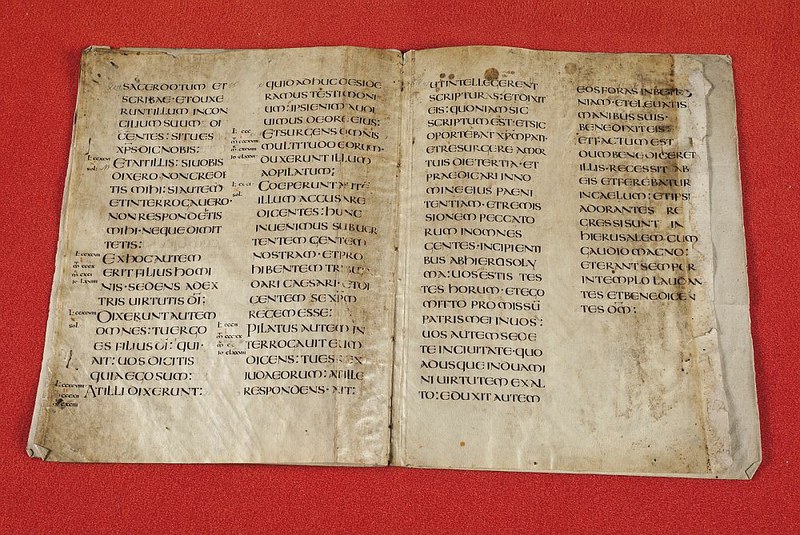 SACERDOTUM ET
SCRIBAE·ETDUXE
RUNTILLUM INCON
CILIUM SUUM· DI
CENTES: SITUES
XPS·DICNOBIS:
ETAITILLIS: SIUOBIS
DIXERO·NONCREDI
TIS MIHI: SIAUTEM
ETINTERROGAUERO·
NONRESPONDETIS
MIHI·NEQUE DIMIT
TETIS:
EXHOCAUTEM
ERITFILIUS HOMI
NIS·SEDENS ADEX
TRIS UIRTUTIS DI:
DIXERUNTAUTEM
OMNES: TUERGO
ES FILIUS DI: QUI·
AIT: UOS DICITIS
QUIAEGO SUM:
ATILLI DIXERUNT:
QUIDADHUC DESIDE
RAMUS TESTIMONI
UM: IPSIENIM AUDI
UIMUS DEORE EIUS:
ETSURGENS OMNIS
MULTITUDO EORUM·
DUXERUNT ILLUM
ADPILATUM;
COEPERUNT
ILLUM ACCUSARE
DICENTES: HUNC
INUENIMUS SUBUER
TENTEM GENTEM
NOSTRAM· ETPRO
HIBENTEM
DARI CAESARI·
CENTEM SE XPM
REGEM ESSE:
PILATUS AUTEM IN
TERROGAUIT EUM
DICENS: TUES REX
IUDAEORUM: ATILLE
RESPONDENS· AIT:
UTINTELLEGERENT
SCRIPTURAS: ETDIXIT
EIS: QUONIAMSIC
SCRIPTUM EST: ETSIC
OPORTEBAT XPMPATI·
ETRESURGERE AMOR
TUIS DIETERTIA· ET
PRAEDICARI INNO
MINEEIUS PAENI
TENTIAM· ETREMIS
SIONEM PECCATO
RUM INOMNES
GENTES· INCIPIENTI
BUS ABHIERUSOLY
MA: UOSESTIS TES
TES HORUM· ETEGO
MITTO PROMISSU
PATRISMEI INUOS:
UOS AUTEM SEDE
TE INCIUITATE· QUO
ADUSQUE INDUAMI
NI UIRTUTEM EXAL
TO: EDUXITAUTEM
EOSFORAS INBETHA
NIAM· ETELEUATIS
MANIBUS SUIS·
BENEDIXITEIS·
ETFACTUM EST
DUM BENEDICERET
ILLIS· RECESSIT AB
EIS ETFEREBATUR
INCAELUM: ETIPSI
ADORANTES RE
GRESSISUNT IN
HIERUSALEM CUM
GAUDIO MAGNO:
ETERANTSEMPER
INTEMPLO LAUDAN
TES ETBENEDICEN
TES DM: